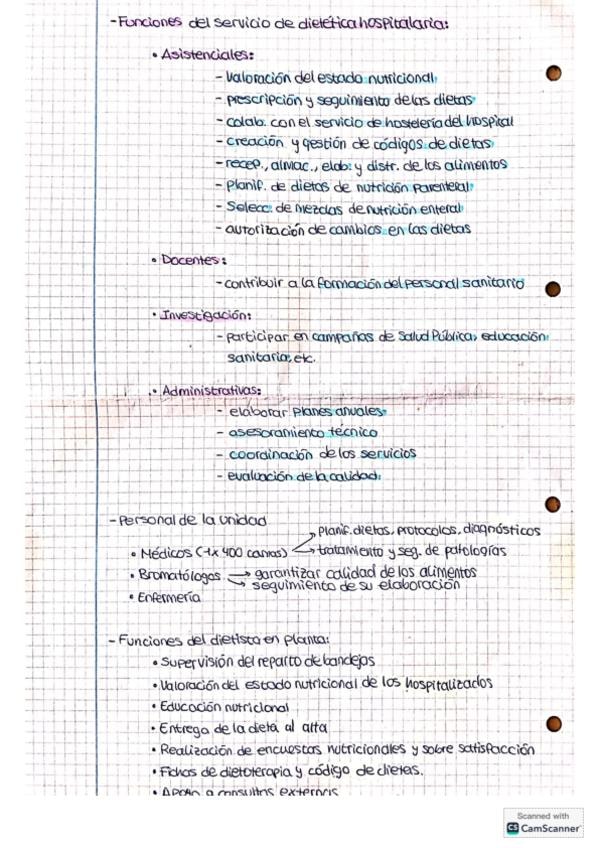 - Funciones del servicio de dietética hospitalaria:
• Asistenciales:
- Valoración del estado nutricional
- prescripción y seguimiento de las dietas
- colab. con el servicio de hostelería del hospital
- creación y gestión de códigos de dietas
- recep., almac., elab. y distr. de los alimentos
- Planif. de dietas de nutrición parenteral
- Selecc. de mezclas de nutrición enteral
- autorización de cambios en las dietas
• Docentes:
- contribuir a la formación del personal sanitario
• Investigación:
- Participar en campañas de Salud Pública, educación
sanitaria, etc.
• Administrativas:
- elaborar planes anuales
- asesoramiento técnico
- coordinación de los servicios
- evaluación de la calidad.
- Personal de la unidad
Planif. dietas, protocolos, diagnósticos
• Médicos (1x400 camas) → tratamiento y seg. de patologías
• Bromatólogos → garantizar calidad de los alimentos
→ seguimiento de su elaboración
• Enfermería
- Funciones del dietista en planta:
• Supervisión del reparto de bandejas
• Valoración del estado nutricional de los hospitalizados
• Educación nutricional
• Entrega de la dieta al alta
• Realización de encuestas nutricionales y sobre satisfacción
• Fichas de dietoterapia y código de dietas.
• Apoyo a consultas externas
Scanned with
CS CamScanner